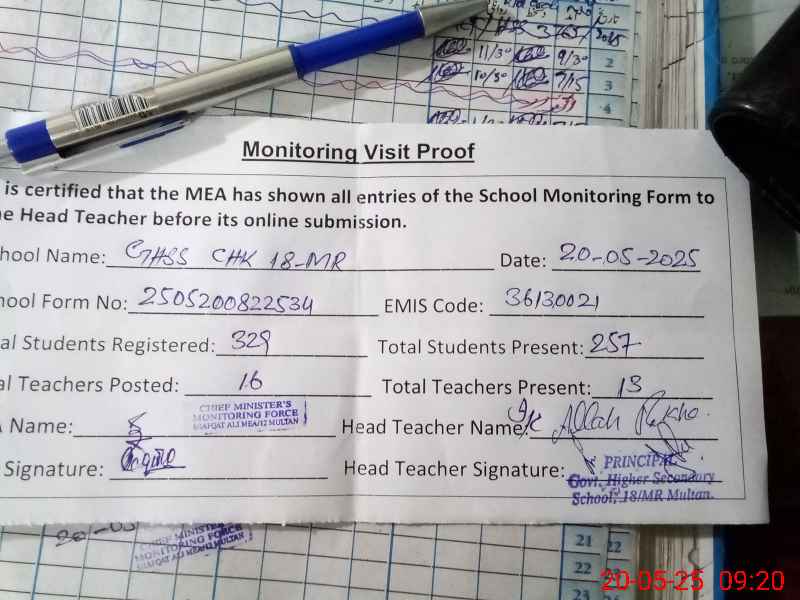 Monitoring Visit Proof
is certified that the MEA has shown all entries of the School Monitoring Form to
e Head Teacher before its online submission.
hool Name: GHSS CHK 18-MR Date: 20-05-2025
hool Form No: 2505200822534 EMIS Code: 36130021
al Students Registered: 329 Total Students Present: 257
al Teachers Posted: 16 Total Teachers Present: 13
Name: Head Teacher Name: Allah
CHIEF MINISTER'S
MONITORING FORCE
LIAFQAT ALI MEA/12 MULTAN
Signature: Head Teacher Signature:
PRINCIPAL
Govt. Higher Secondary
School, 18/MR Multan.
11/30 9/30 2
10/30 7/15 3
4
20-05
CHIEF MINISTER'S
MONITORING FORCE
LIAFQAT ALI MEA/12 MULTAN
21 22
22
23
20-05-25 09:20